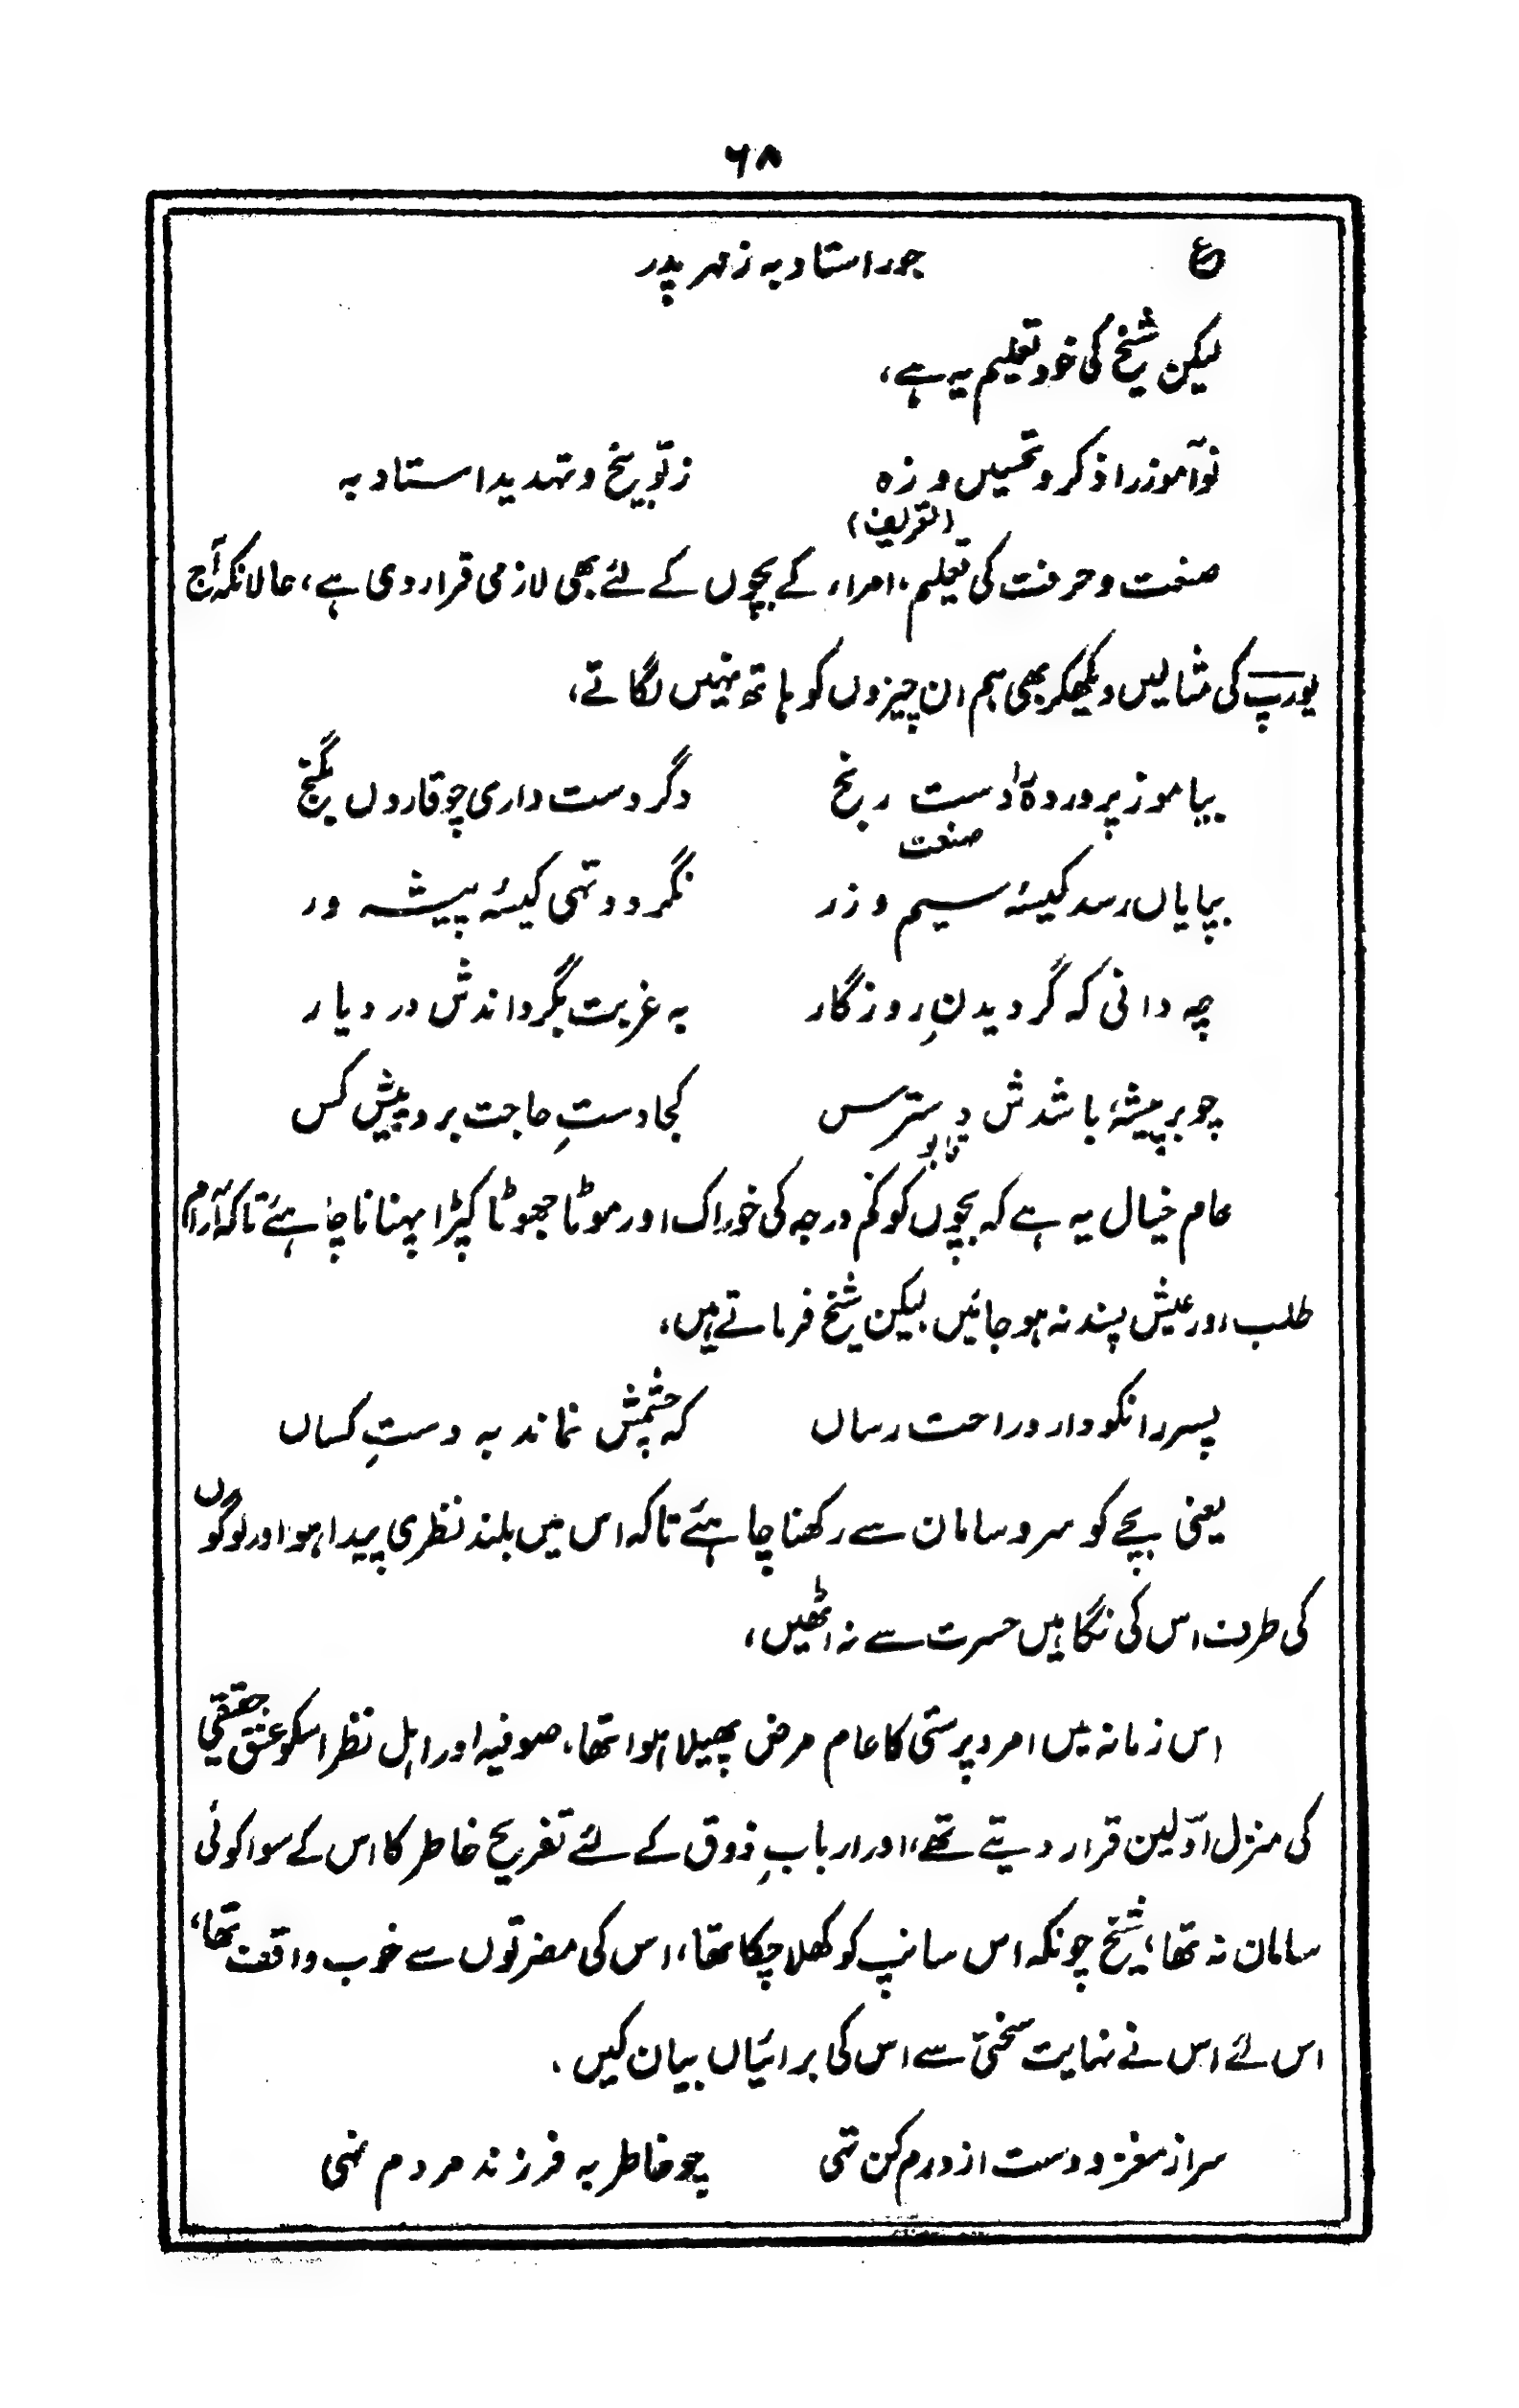 ۶۸
ع جور استاد بہ ز مہر پدر
لیکن شیخ کی خود تعلیم یہ ہے،
نوآموز را ذکر و تحسیں و زہ ز توبیخ و تہدید استاد بہ
(تعریف)
صنعت و حرفت کی تعلیم، امراء کے بچوں کے لئے بھی لازمی قرار دی ہے، حالانکہ آج
یورپ کی مثالیں دیکھکر بھی ہم ان چیزوں کو ہاتھ نہیں لگاتے،
بیاموز پروردہ را دست رنج دگر دست داری چو قاروں بگنج
صنعت
بپایاں رسد کیسۂ سیم و زر نگردد تہی کیسۂ پیشہ ور
چہ دانی کہ گردیدنِ روزگار بہ غربت بگرداندش در دیار
چو بر پیشۂ باشدش دسترس کجا دستِ حاجت برد پیش کس
قابو
عام خیال یہ ہے کہ بچوں کو کم درجہ کی خوراک اور موٹا جھوٹا کپڑا پہنانا چاہئے تاکہ آرام
طلب اور عیش پسند نہ ہو جائیں لیکن شیخ فرماتے ہیں،
پسر را نکودار و راحت رساں کہ چشمش نماند بہ دستِ کساں
یعنی بچے کو سروسامان سے رکھنا چاہئے تاکہ اس میں بلند نظری پیدا ہو اور لوگوں
کی طرف اس کی نگاہیں حسرت سے نہ اٹھیں،
اس زمانہ میں امرد پرستی کا عام مرض پھیلا ہوا تھا، صوفیہ اور اہل نظر اسکو عشق حقیقی
کی منزل اوّلین قرار دیتے تھے، اور اربابِ ذوق کے لئے تفریح خاطر کا اس کے سوا کوئی
سامان نہ تھا؛ شیخ چونکہ اس سانپ کو کھلا چکا تھا، اس کی مضرتوں سے خوب واقف تھا،
اس لئے اس نے نہایت سختی سے اس کی برائیاں بیان کیں.
سر از مغز و دست از درم کن تہی چو خاطر بہ فرزند مردم نہی